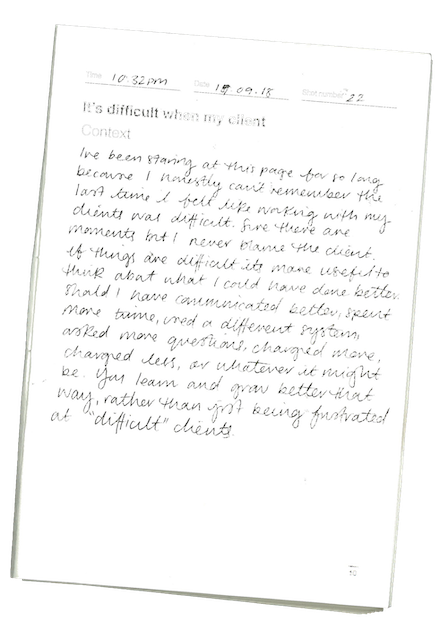 Time 10:32pm Date 19.09.18 22
It's difficult when my client
Context
Ive been staring at this page for so long
because I honestly can't remember the
last time I felt like working with my
clients was difficult. Sure there are
moments but I never blame the client.
If things are difficult its more useful to
think about what I could have done better.
Should I have communicated better, spent
more time, used a different system,
asked more questions, charged more,
charged less, or whatever it might
be. You learn and grow better that
way, rather than just being frustrated
at "difficult" clients.